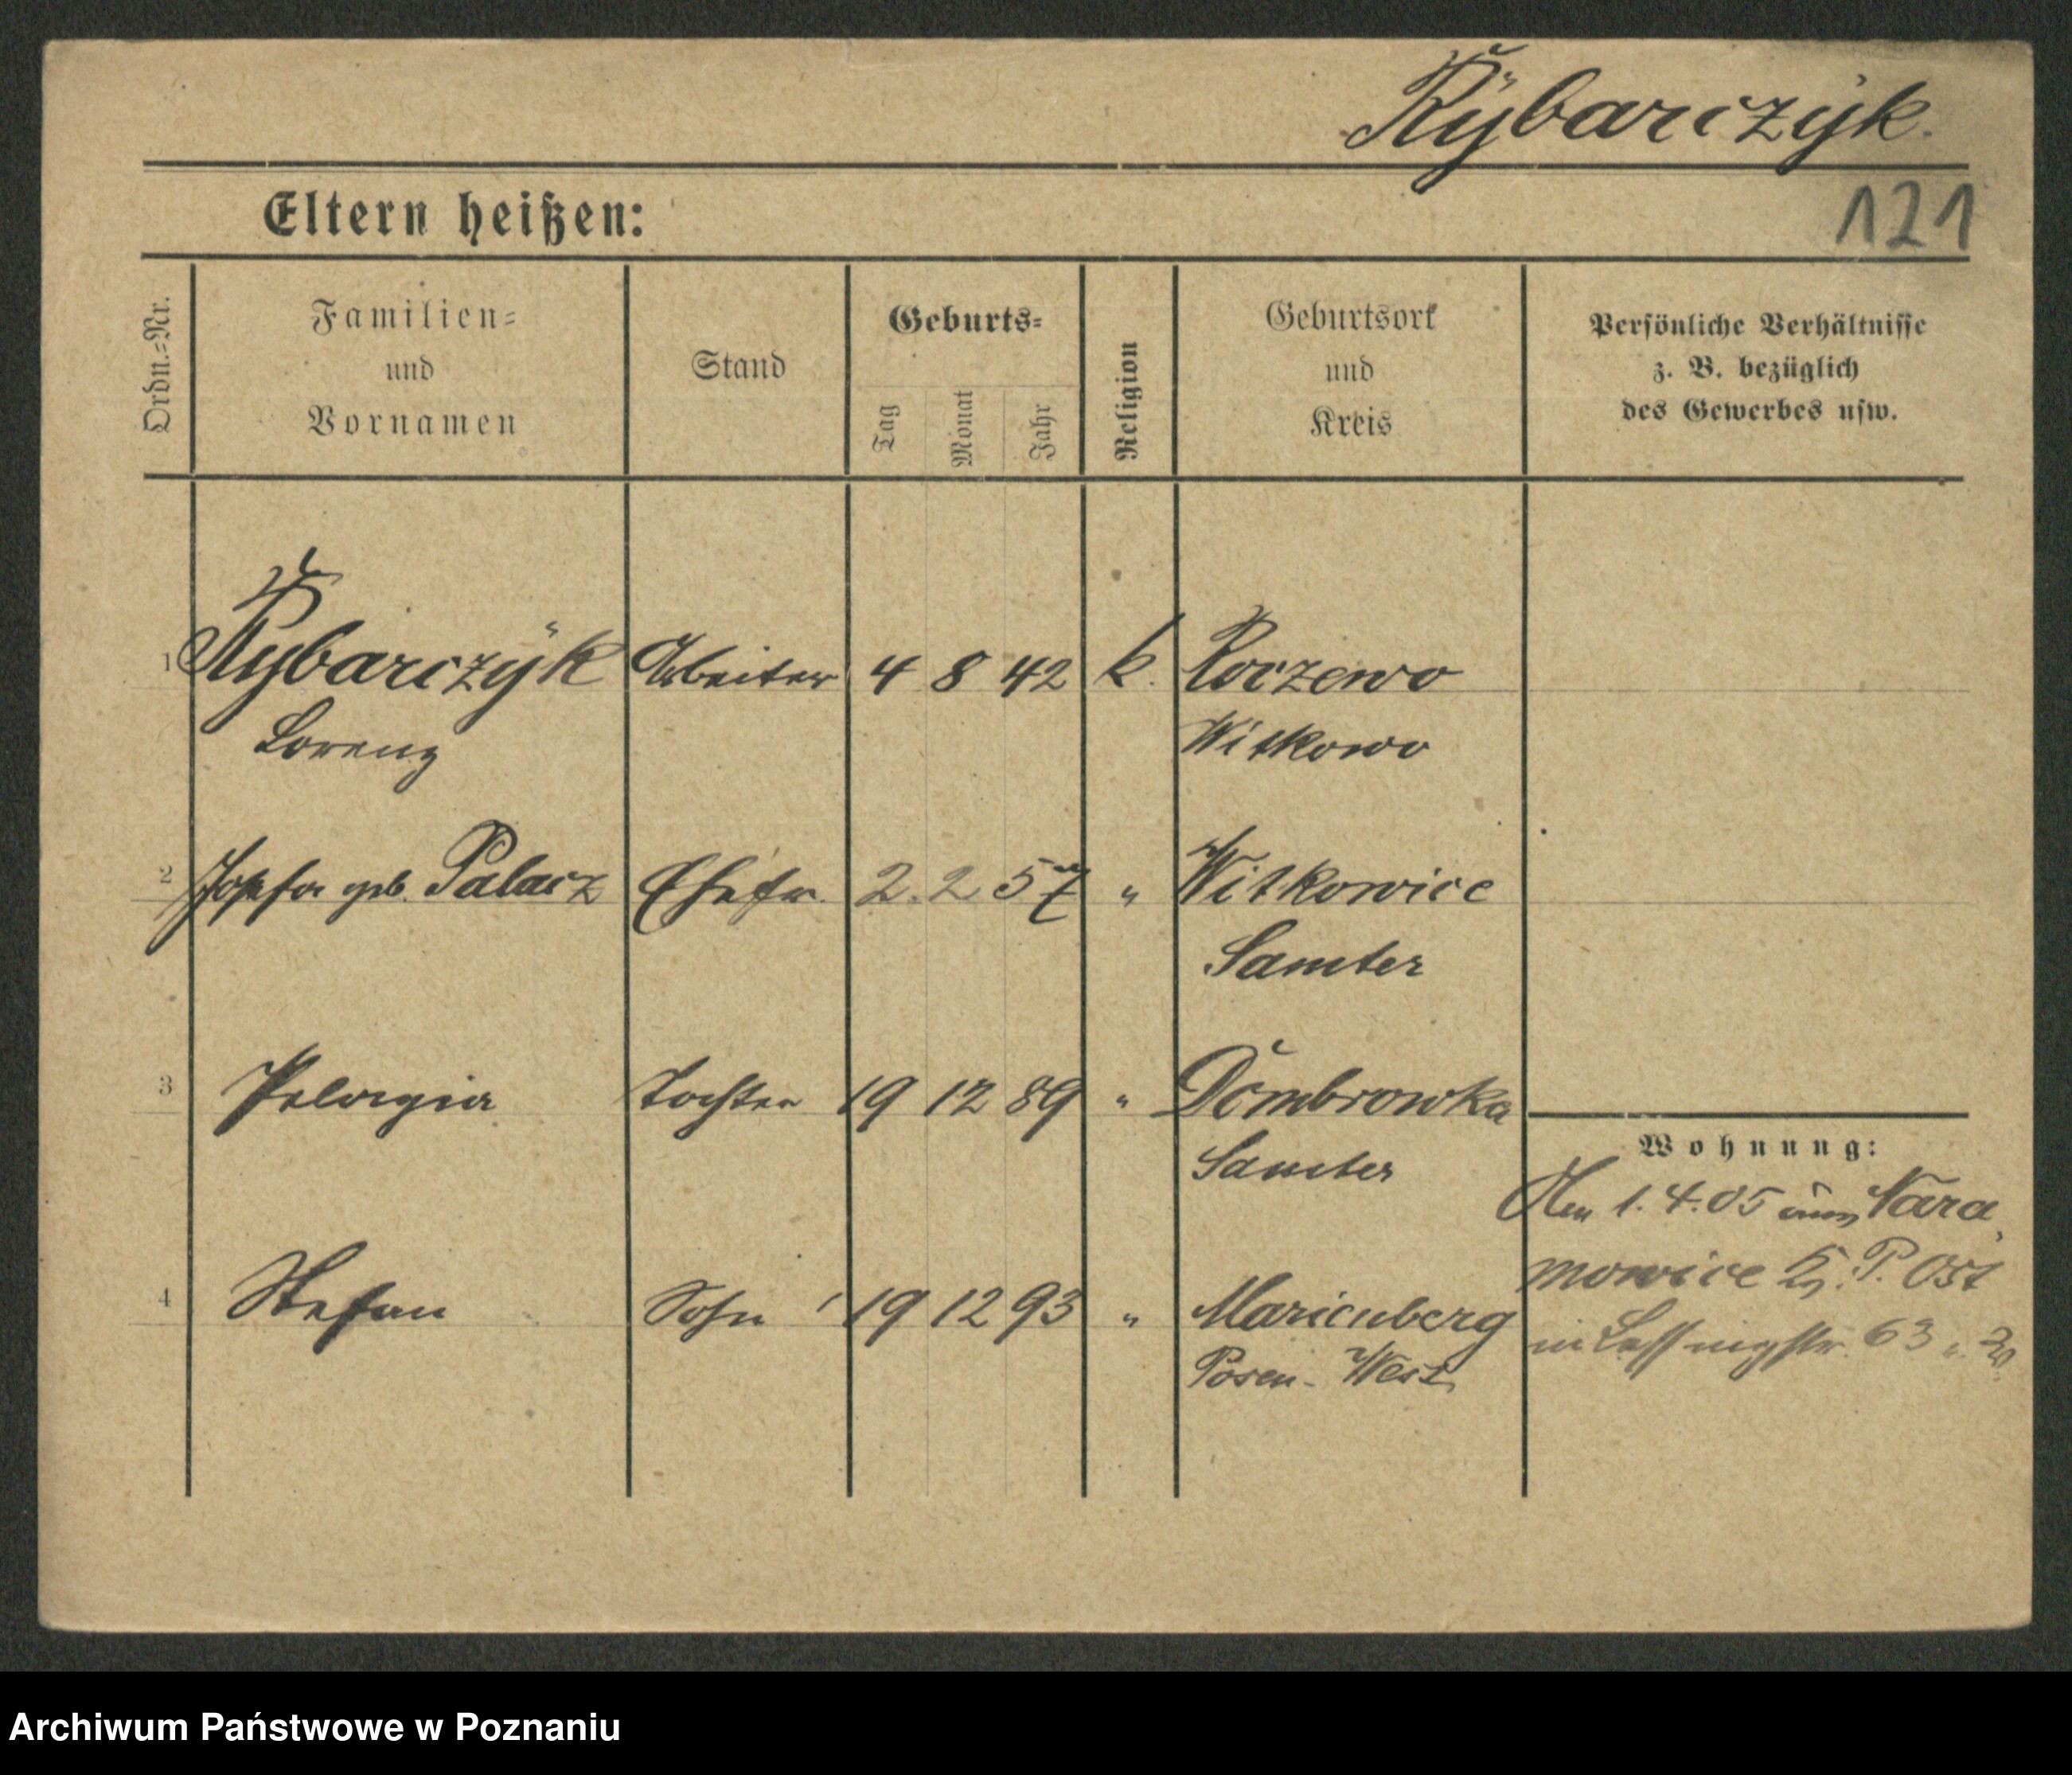 Rÿbarczÿk.
Eltern heißen:
121
Ordn.=Nr.
Familien=
und
Vornamen
Stand
Geburts=
Tag
Monat
Jahr
Religion
Geburtsort
und
Kreis
Persönliche Verhältnisse
z. B. bezüglich
des Gewerbes usw.
1 Rybarczÿk Arbeiter 4 8 42 k. Roczewo
Lorenz Witkowo
2 Josefa geb. Palacz Ehefr. 2. 2 57 " Witkowice
Samter
3 Pelagia Tochter 19 12 89 " Dombrowka
Samter
Wohnung:
1. 4. 05 Nara
mowice P. Ost
4 Stefan Sohn 19 12 93 " Marienberg
in Lessingstr. 63
Posen-West
Archiwum Państwowe w Poznaniu